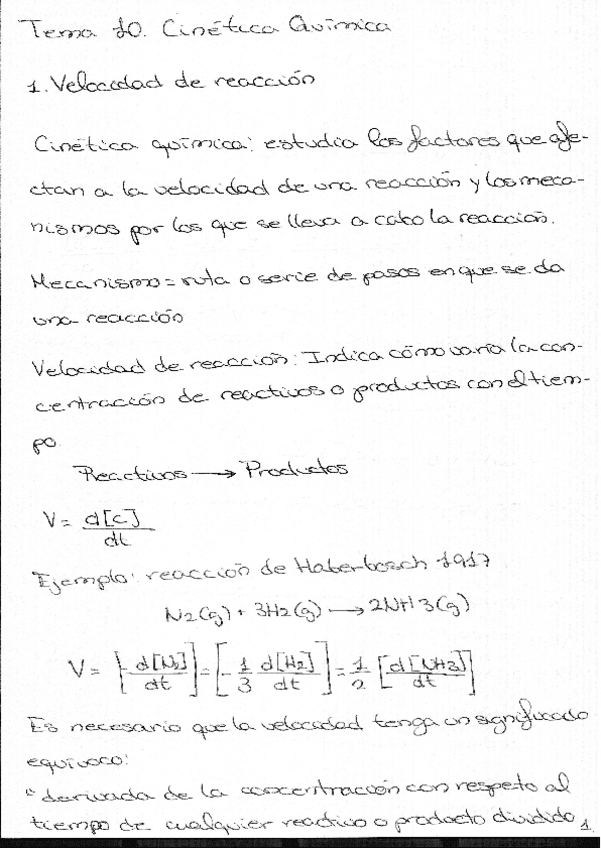 Tema 10. Cinética Química
1. Velocidad de reacción
Cinética química: estudia los factores que afe-
ctan a la velocidad de una reacción y los meca-
nismos por los que se lleva a cabo la reacción.
Mecanismo = ruta o serie de pasos en que se da
una reacción
Velocidad de reacción: Indica cómo varía la con-
centración de reactivos o productos con el tiem-
po.
Reactivos → Productos
V = d[C]/dt
Ejemplo: reacción de Haberbosch 1917
N2(g) + 3H2(g) → 2NH3(g)
V = [-d[N2]/dt] = [-1/3 d[H2]/dt] = 1/2 [d[NH3]/dt]
Es necesario que la velocidad tenga un significado
equívoco:
"derivada de la concentración con respecto al
tiempo de cualquier reactivo o producto dividido
1